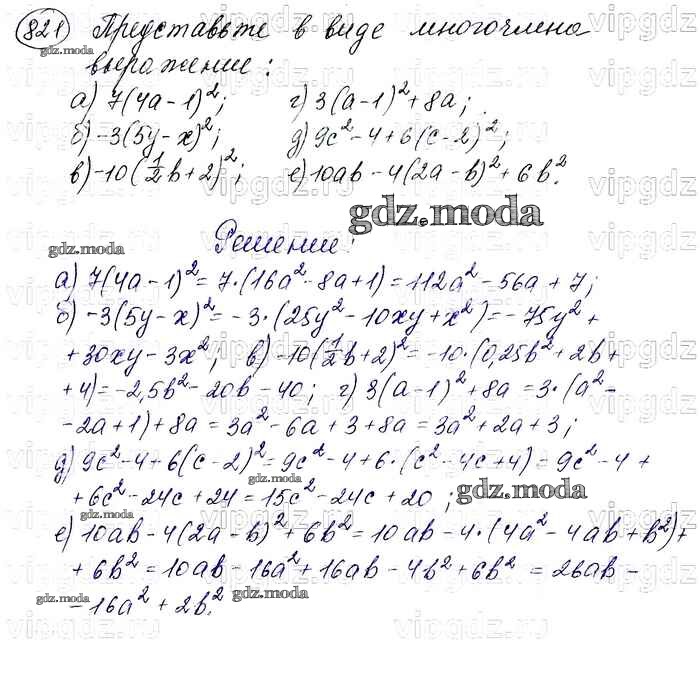 821 Представьте в виде многочлена
выражение:
а) 7(4a-1)²; г) 3(a-1)²+8a;
б) -3(5y-x)²; д) 9c²-4+6(c-2)²;
в) -10(1/2b+2)²; е) 10ab-4(2a-b)²+6b².
gdz.moda
Решение:
gdz.moda
а) 7(4a-1)²=7·(16a²-8a+1)=112a²-56a+7;
б) -3(5y-x)²=-3·(25y²-10xy+x²)=-75y²+
+30xy-3x²; в) -10(1/2b+2)²=-10·(0,25b²+2b+
+4)=-2,5b²-20b-40; г) 3(a-1)²+8a=3·(a²-
-2a+1)+8a=3a²-6a+3+8a=3a²+2a+3;
д) 9c²-4+6(c-2)²=9c²-4+6·(c²-4c+4)=9c²-4+
gdz.moda
+6c²-24c+24=15c²-24c+20;
gdz.moda
gdz.moda
е) 10ab-4(2a-b)²+6b²=10ab-4·(4a²-4ab+b²)+
+6b²=10ab-16a²+16ab-4b²+6b²=26ab-
gdz.moda
gdz.moda
-16a²+2b².